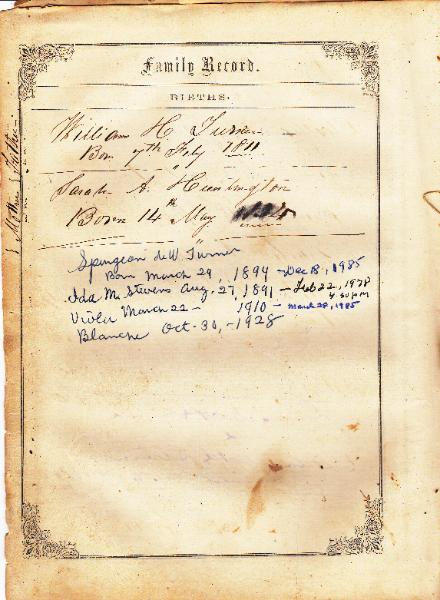 Family Record.
BIRTHS.
William H Turner
Born 7th Feby 1811
Sarah A. Huntington
Born 14th May
Spurgeon deW. Turner
Born March 29, 1894 - Dec 18, 1985
Ida M. Stevens Aug. 27, 1891 - Feb 22, 1978
4:50 PM
Violer March 22 - 1910 - March 28, 1985
Blanche Oct. 30, - 1928
Mother Father